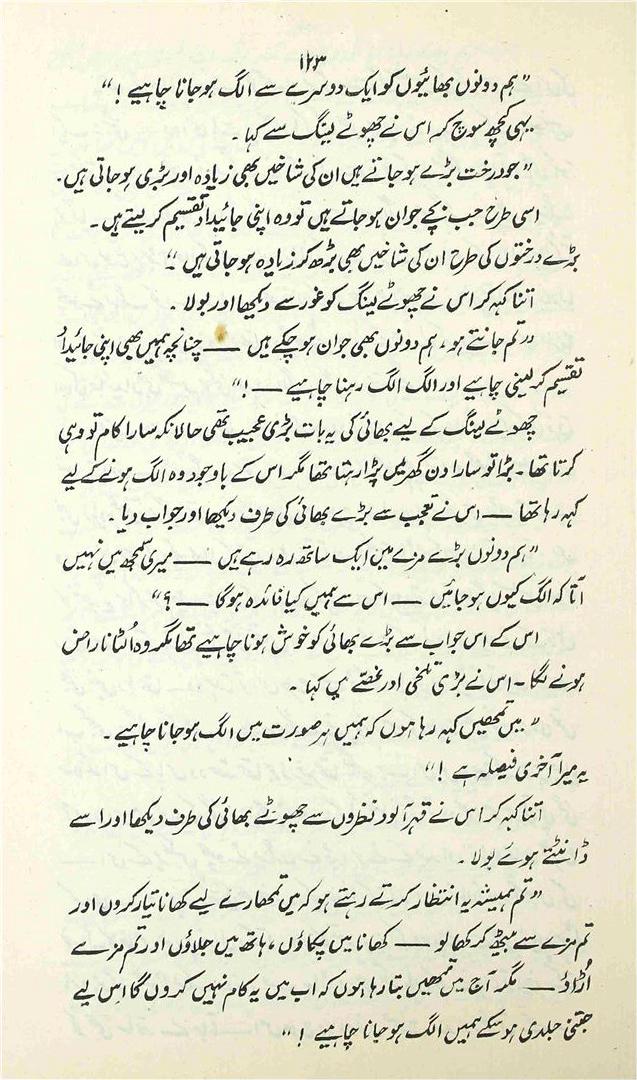 ۱۲۳
”ہم دونوں بھائیوں کو ایک دوسرے سے الگ ہو جانا چاہیے !“
یہی کچھ سوچ کر اس نے چھوٹے لینگ سے کہا ۔
”جو درخت بڑے ہو جاتے ہیں ان کی شاخیں بھی زیادہ اور بڑی ہو جاتی ہیں۔
اسی طرح جب بچے جوان ہو جاتے ہیں تو وہ اپنی جائیداد تقسیم کر لیتے ہیں۔
بڑے درختوں کی طرح ان کی شاخیں بھی بڑھ کر زیادہ ہو جاتی ہیں ۔“
اتنا کہہ کر اس نے چھوٹے لینگ کو غور سے دیکھا اور بولا ۔
”تم جانتے ہو ، ہم دونوں بھی جوان ہو چکے ہیں ــــ چنانچہ ہمیں بھی اپنی جائیداد
تقسیم کر لینی چاہیے اور الگ الگ رہنا چاہیے ــــ !“
چھوٹے لینگ کے لیے بھائی کی یہ بات بڑی عجیب تھی حالانکہ سارا کام تو وہی
کرتا تھا ۔ بڑا تو سارا دن گھر میں پڑا رہتا تھا مگر اس کے باوجود وہ الگ ہونے کے لیے
کہہ رہا تھا ــــ اس نے تعجب سے بڑے بھائی کی طرف دیکھا اور جواب دیا ۔
”ہم دونوں بڑے مزے میں ایک ساتھ رہ رہے ہیں ــــ میری سمجھ میں نہیں
آتا کہ الگ کیوں ہو جائیں ــــ اس سے ہمیں کیا فائدہ ہوگا ــــ ؟“
اس کے اس جواب سے بڑے بھائی کو خوش ہونا چاہیے تھا مگر وہ الٹا ناراض
ہونے لگا ۔ اس نے بڑی تلخی اور غصے میں کہا ۔
”میں تمھیں کہہ رہا ہوں کہ ہمیں ہر صورت میں الگ ہو جانا چاہیے ۔
یہ میرا آخری فیصلہ ہے !“
اتنا کہہ کر اس نے قہر آلود نظروں سے چھوٹے بھائی کی طرف دیکھا اور اسے
ڈانٹتے ہوئے بولا ۔
”تم ہمیشہ یہ انتظار کرتے رہتے ہو کہ میں تمھارے لیے کھانا تیار کروں اور
تم مزے سے بیٹھ کر کھا لو ــــ کھانا میں پکاؤں ، ہاتھ میں جلاؤں اور تم مزے
اُڑاؤ ــــ مگر آج میں تمھیں بتا رہا ہوں کہ اب میں یہ کام نہیں کروں گا اس لیے
جتنی جلدی ہو سکے ہمیں الگ ہو جانا چاہیے !“